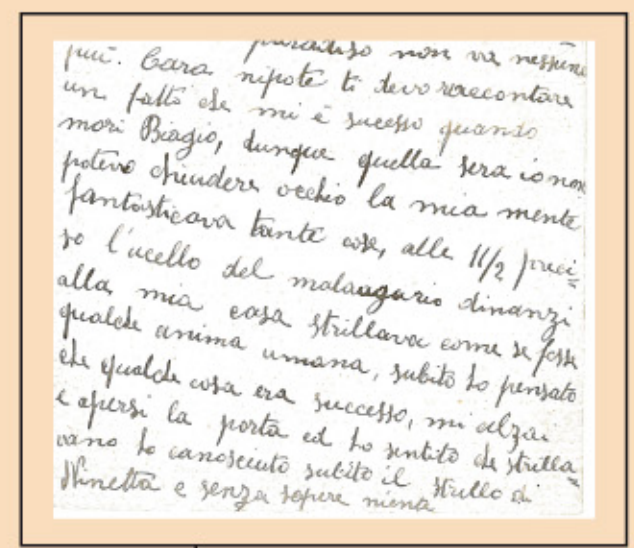 paradiso non va nessuno
più. Cara nipote ti devo raccontare
un fatto che mi è sucesso quando
morì Biagio, dunque quella sera io non
potevo chiudere occhio la mia mente
fantasticava tante cose, alle 11/2 preci=
so l'ucello del malaugurio dinanzi
alla mia casa strillava come se fosse
qualche anima umana, subito ho pensato
che qualche cosa era successo, mi alzai
e apersi la porta ed ho sentito che strilla=
vano ho canosciuto subito il strillo di
Ninetta e senza sapere niena